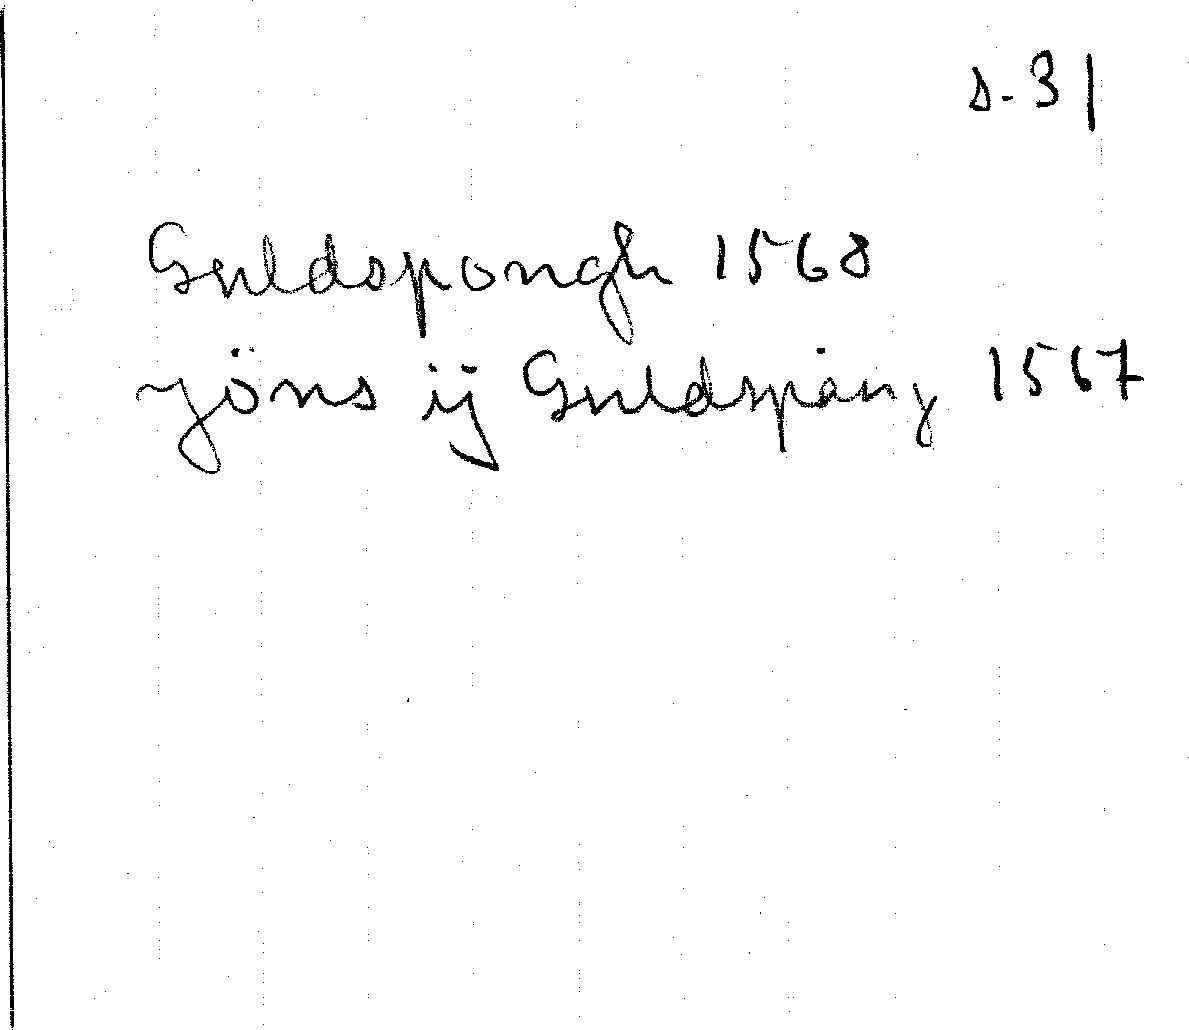 s. 31
Guldspongh 1568
yöns ij Guldspång 1567